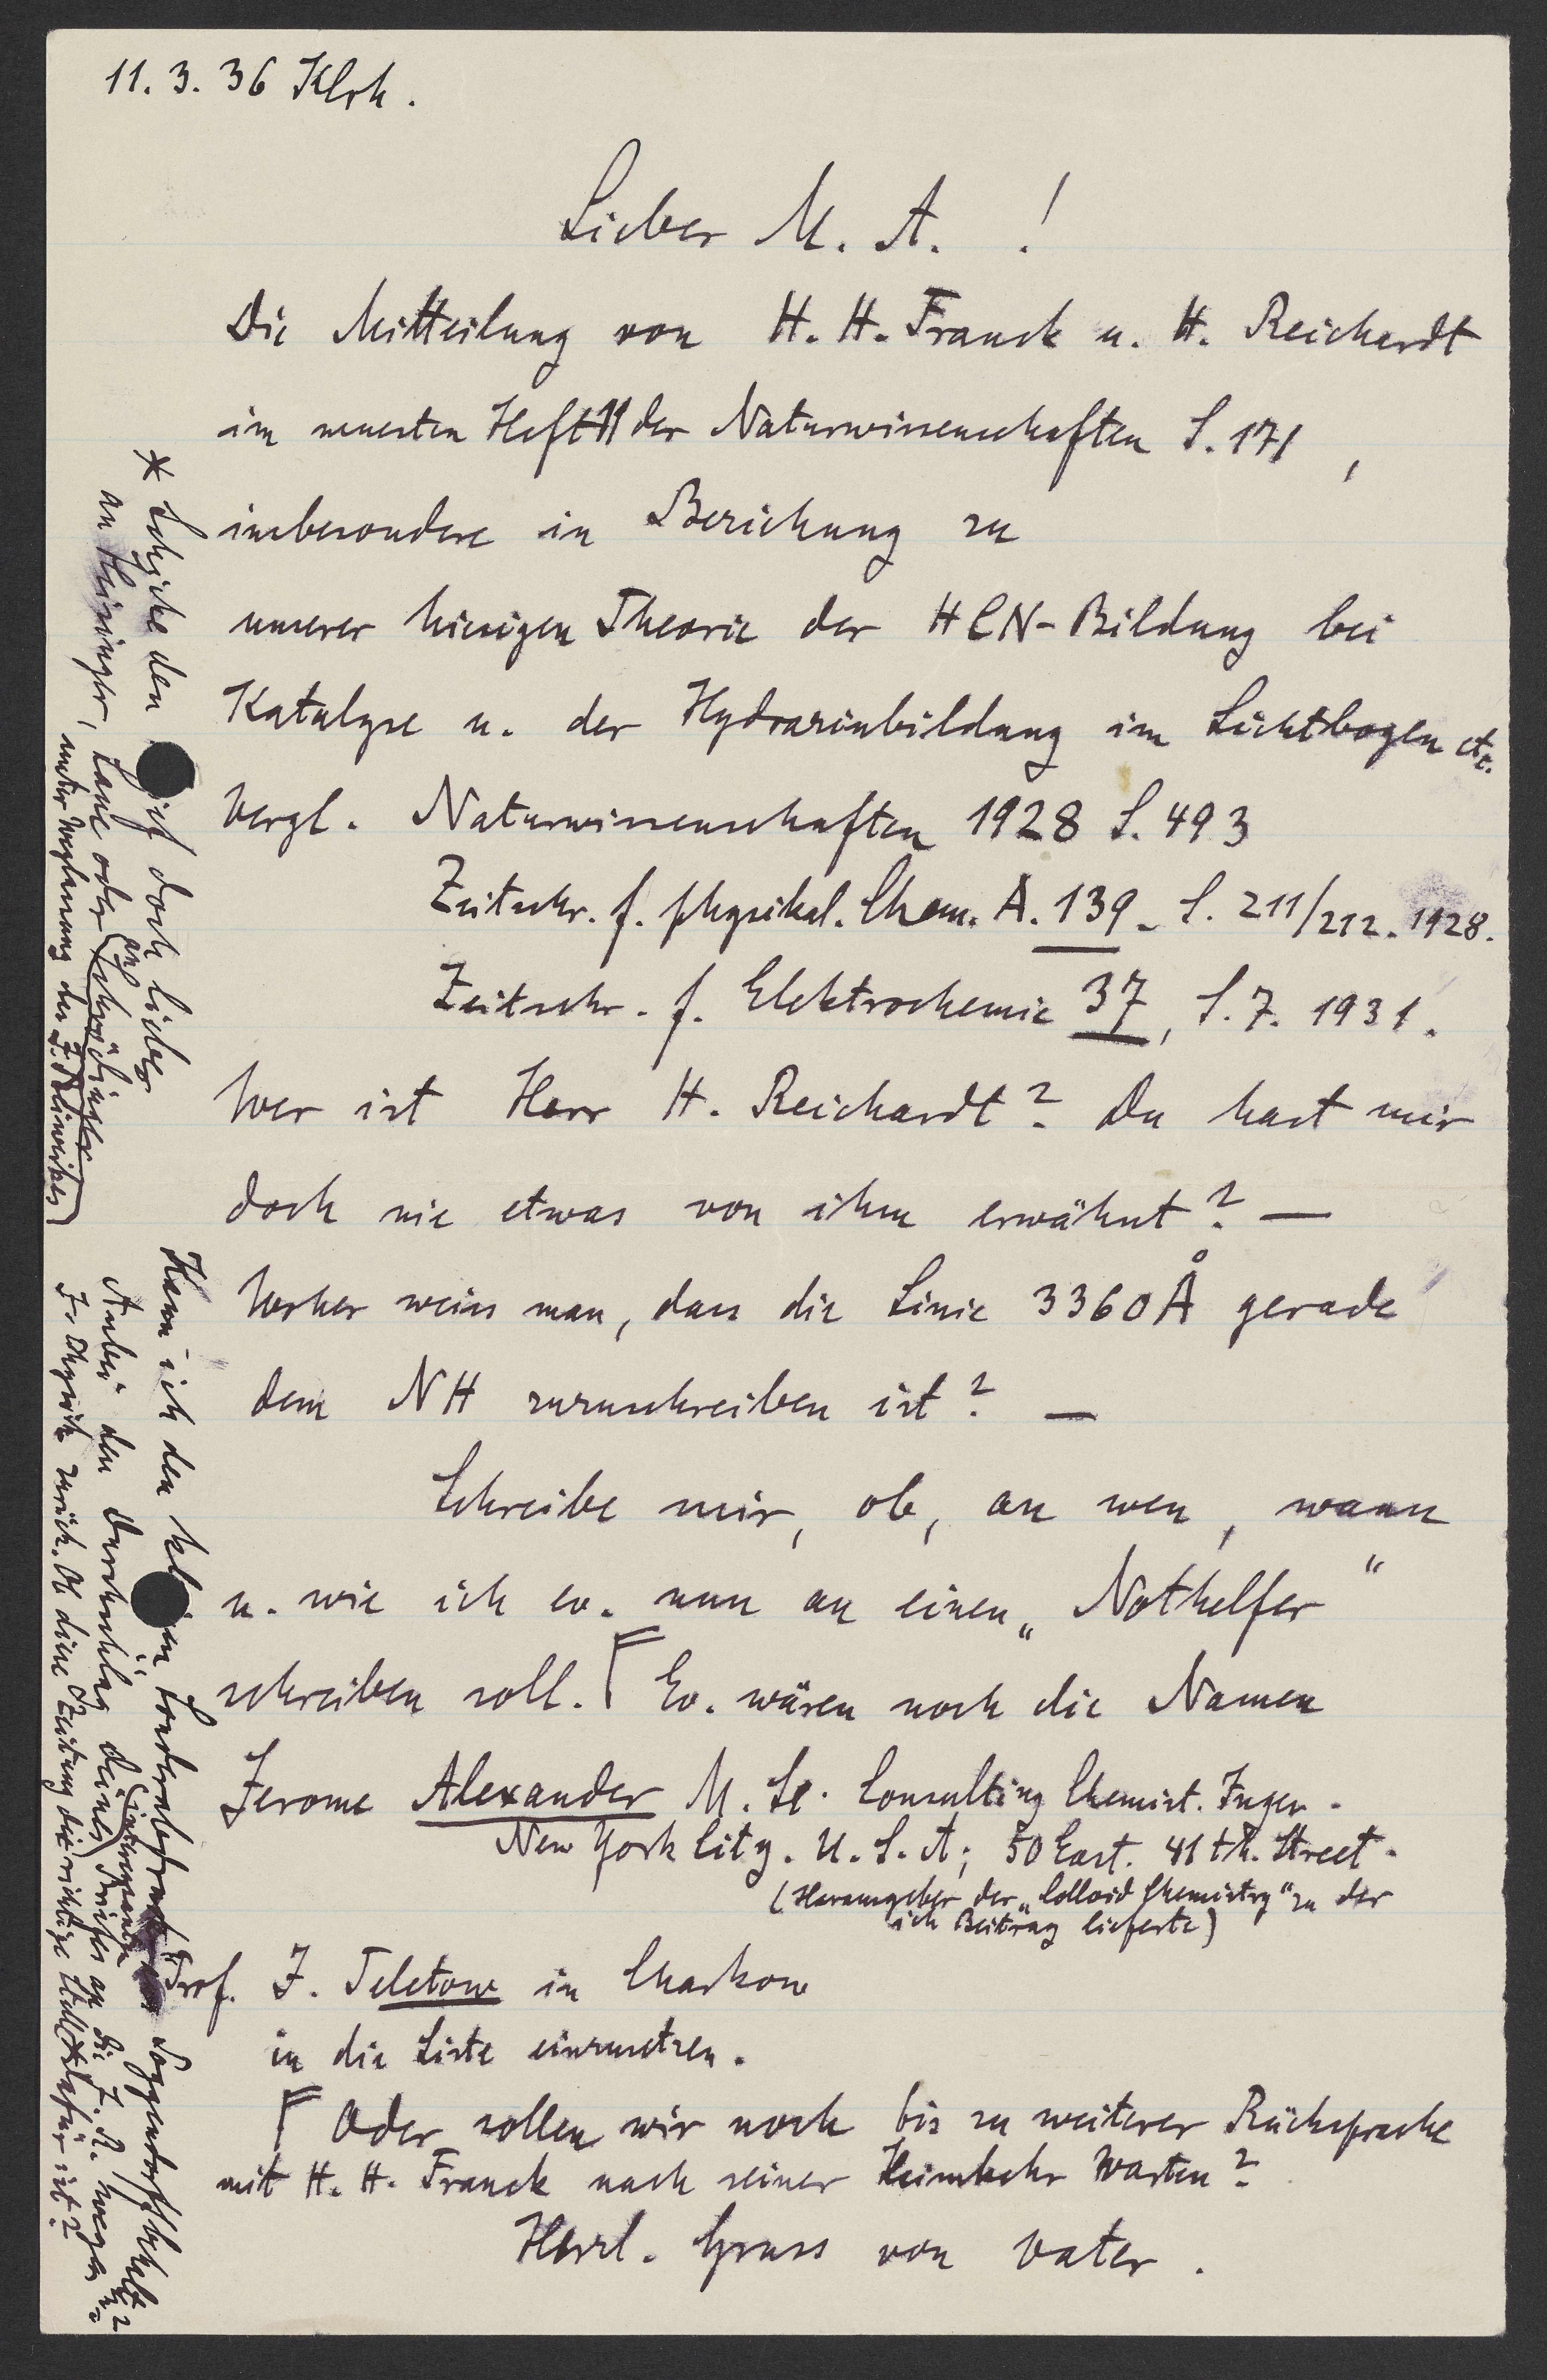 11. 3. 36 Klrh.
Lieber M. A. !
Die Mitteilung von H. H. Franck u. H. Reichardt
im neuesten Heft 11 der Naturwissenschaften S. 171 ,
insbesondere in Beziehung zu
unserer hiesigen Theorie der HCN-Bildung bei
Katalyse u. der Hydrazinbildung im Lichtbogen etc.
Vergl. Naturwissenschaften 1928 S. 493
Zeitschr. f. physikal. Chem. A. 139. S. 211/212. 1928.
Zeitschr. f. Elektrochemie 37, S. 7. 1931.
Wer ist Herr H. Reichardt? Du hast mir
doch nie etwas von ihm erwähnt? —
Woher weiss man, dass die Linie 3360 Å gerade
dem NH zuzuschreiben ist? —
Schreibe mir, ob, an wen, wann
u. wie ich ev. nun an einen „Nothelfer"
schreiben soll. Ev. wären noch die Namen
Jerome Alexander M. Sc. Consulting Chemist. Ingen.
New York City. U. S. A; 50 East. 41 th. Street.
(Herausgeber der „Colloid Chemistry" zu der
ich Beitrag lieferte)
Prof. J. Teletow in Charkow
in die Liste einzusetzen.
Oder sollen wir noch bis zu weiterer Rücksprache
mit H. H. Franck nach seiner Heimkehr warten?
Herzl. Gruss von Vater.
* Schicke den Brief doch lieber
an Heisingler, Laue oder an Schrödinger
unter Weglassung des
Kann ich den kleinen Sonderabdruck Poggendorff behalten?
Anbei den Durchschlag deines (interessanten) Briefes an die J. R. wegen
J. Ehrlich zurück. Ob diese Zeitung die richtige Stelle dafür ist?